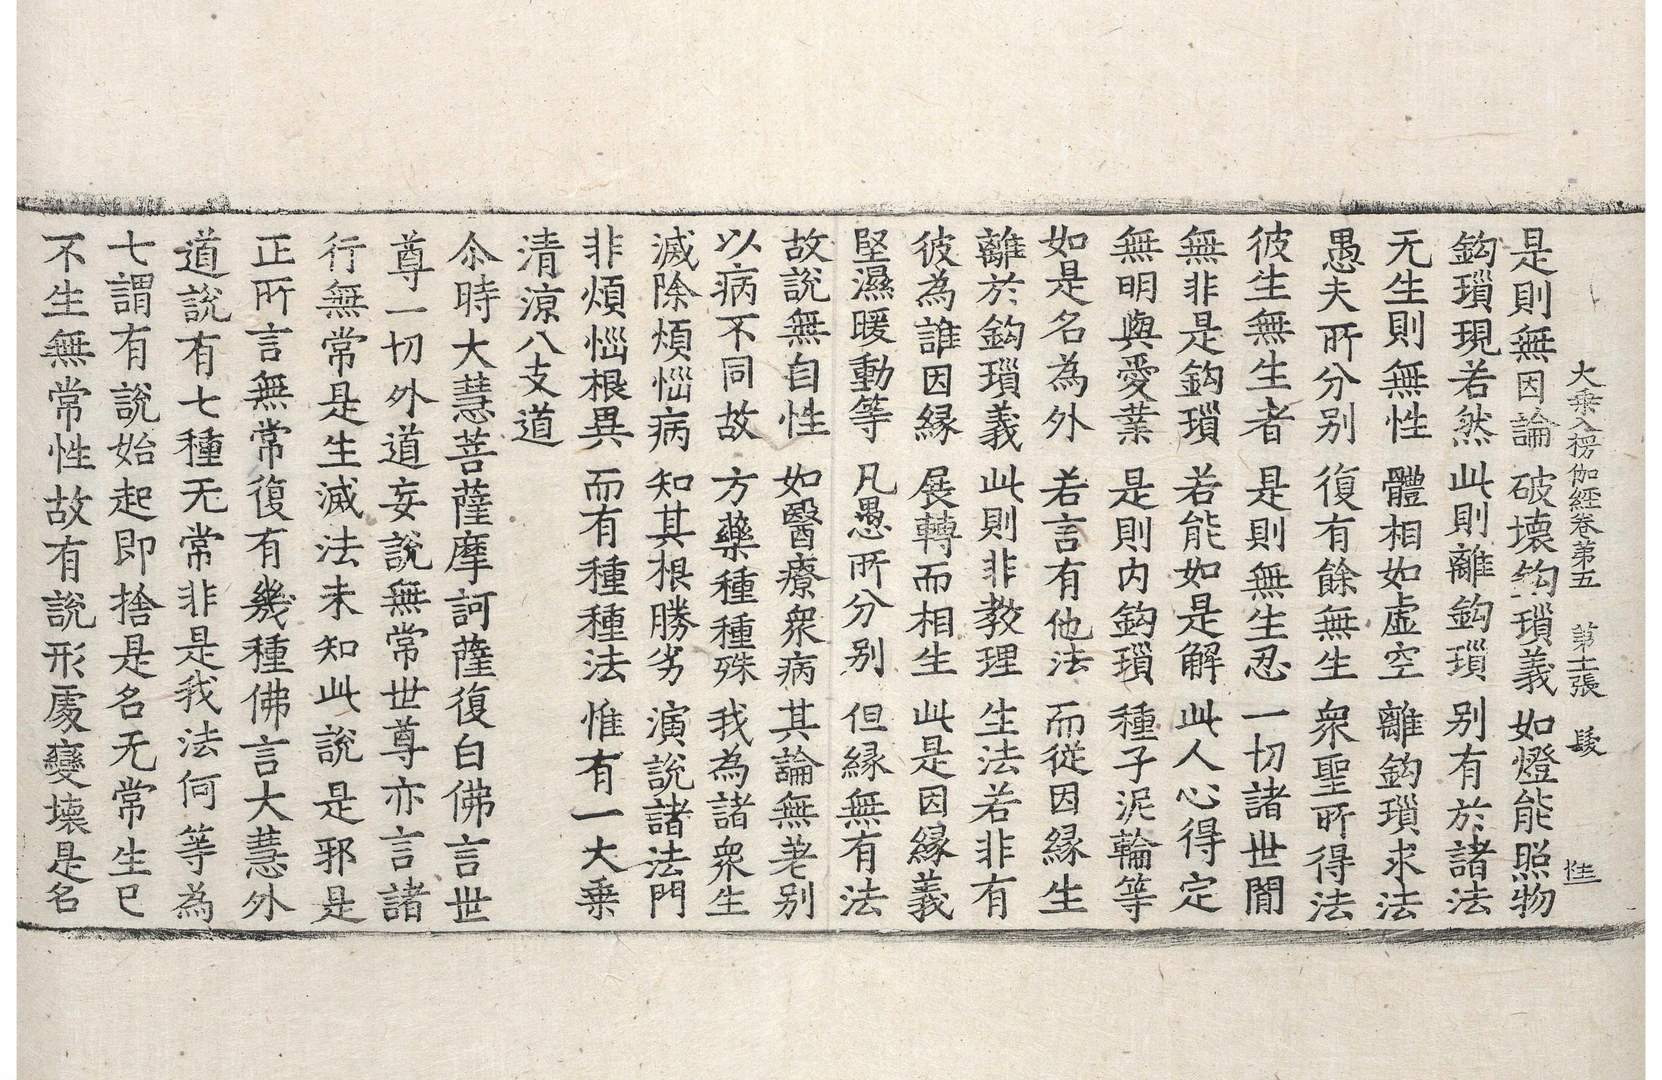 大乘入楞伽經卷第五　第十二張
是則無因論　破壞鉤瑣義　如燈能照物
鉤瑣現若然　此則離鉤瑣　別有於諸法
无生則無性　體相如虛空　離鉤瑣求法
愚夫所分別　復有餘無生　衆聖所得法
彼生無生者　是則無生忍　一切諸世閒
無非是鉤瑣　若能如是解　此人心得定
無明與愛業　是則內鉤瑣　種子泥輪等
如是名為外　若言有他法　而從因緣生
離於鉤瑣義　此則非教理　生法若非有
彼為誰因緣　展轉而相生　此是因緣義
堅濕暖動等　凡愚所分別　但緣無有法
故說無自性　如醫療衆病　其論無差別
以病不同故　方藥種種殊　我為諸衆生
滅除煩惱病　知其根勝劣　演說諸法門
非煩惱根異　而有種種法　惟有一大乘
清涼八支道
尒時大慧菩薩摩訶薩復白佛言世
尊一切外道妄說無常世尊亦言諸
行無常是生滅法未知此說是邪是
正所言無常復有幾種佛言大慧外
道說有七種无常非是我法何等為
七謂有說始起即捨是名无常生已
不生無常性故有說形處變壞是名